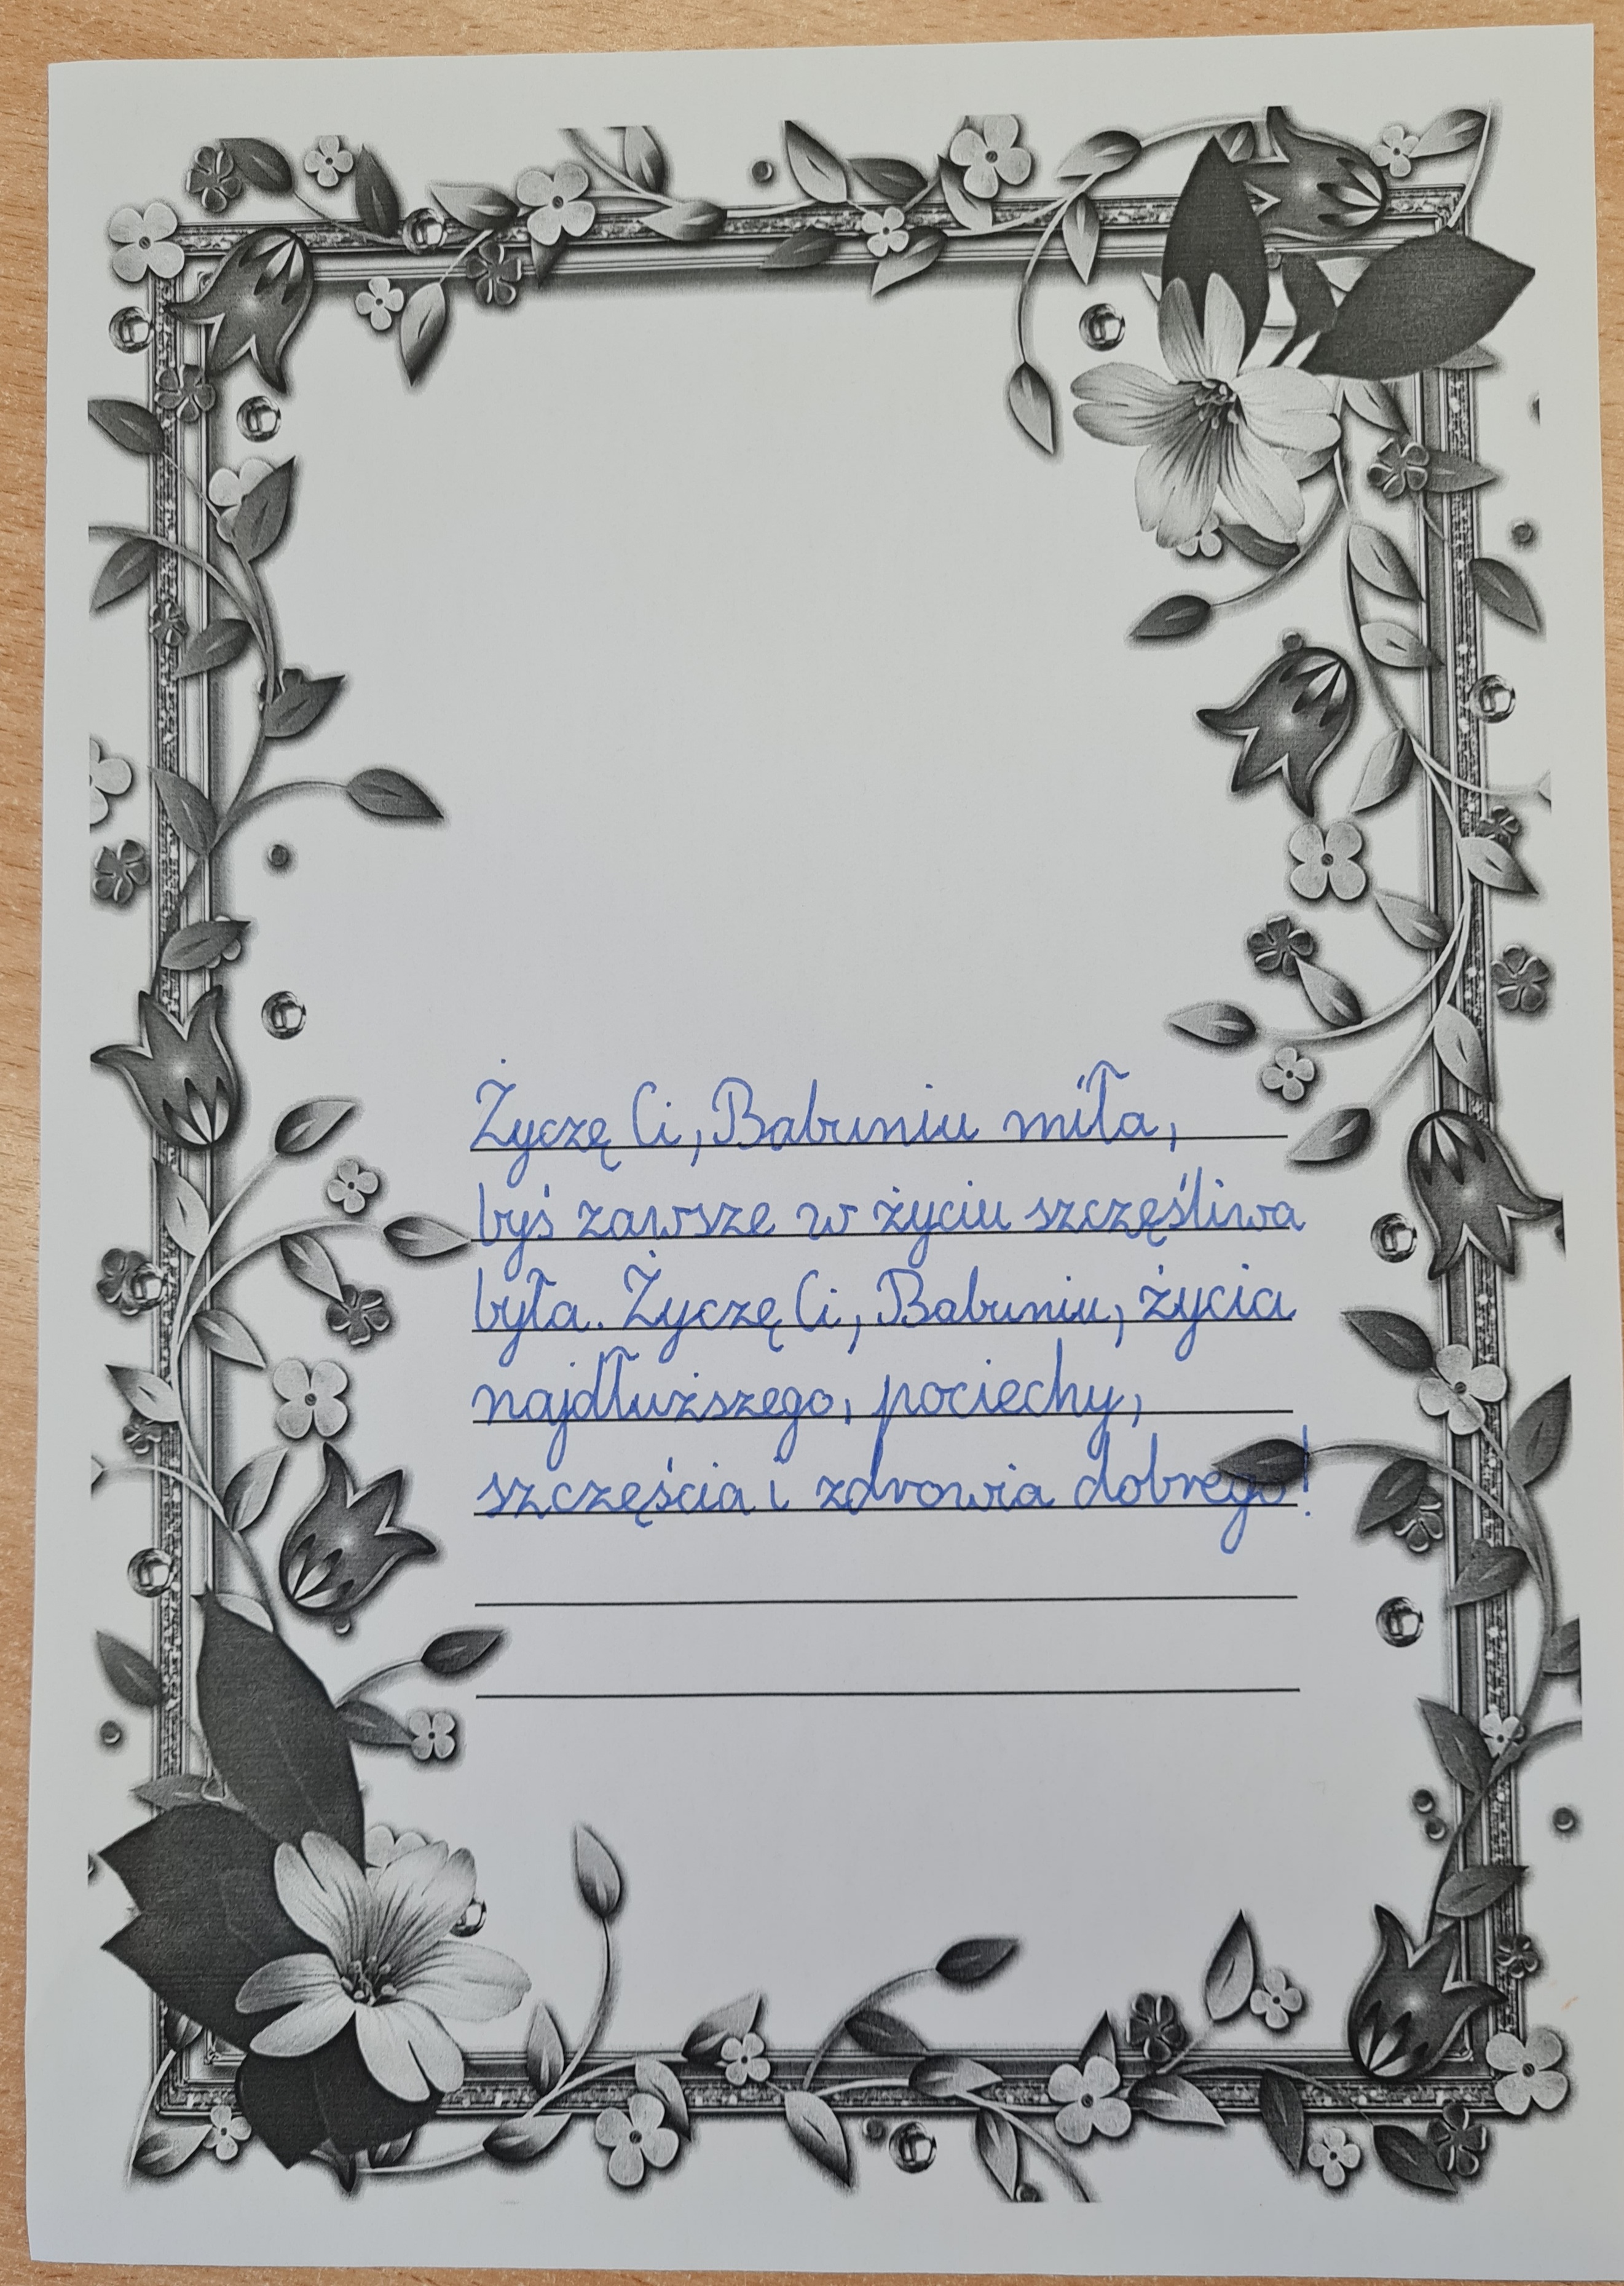 Życzę Ci, Babuniu miła,
byś zawsze w życiu szczęśliwa
była. Życzę Ci, Babuniu, życia
najdłuższego, pociechy,
szczęścia i zdrowia dobrego!